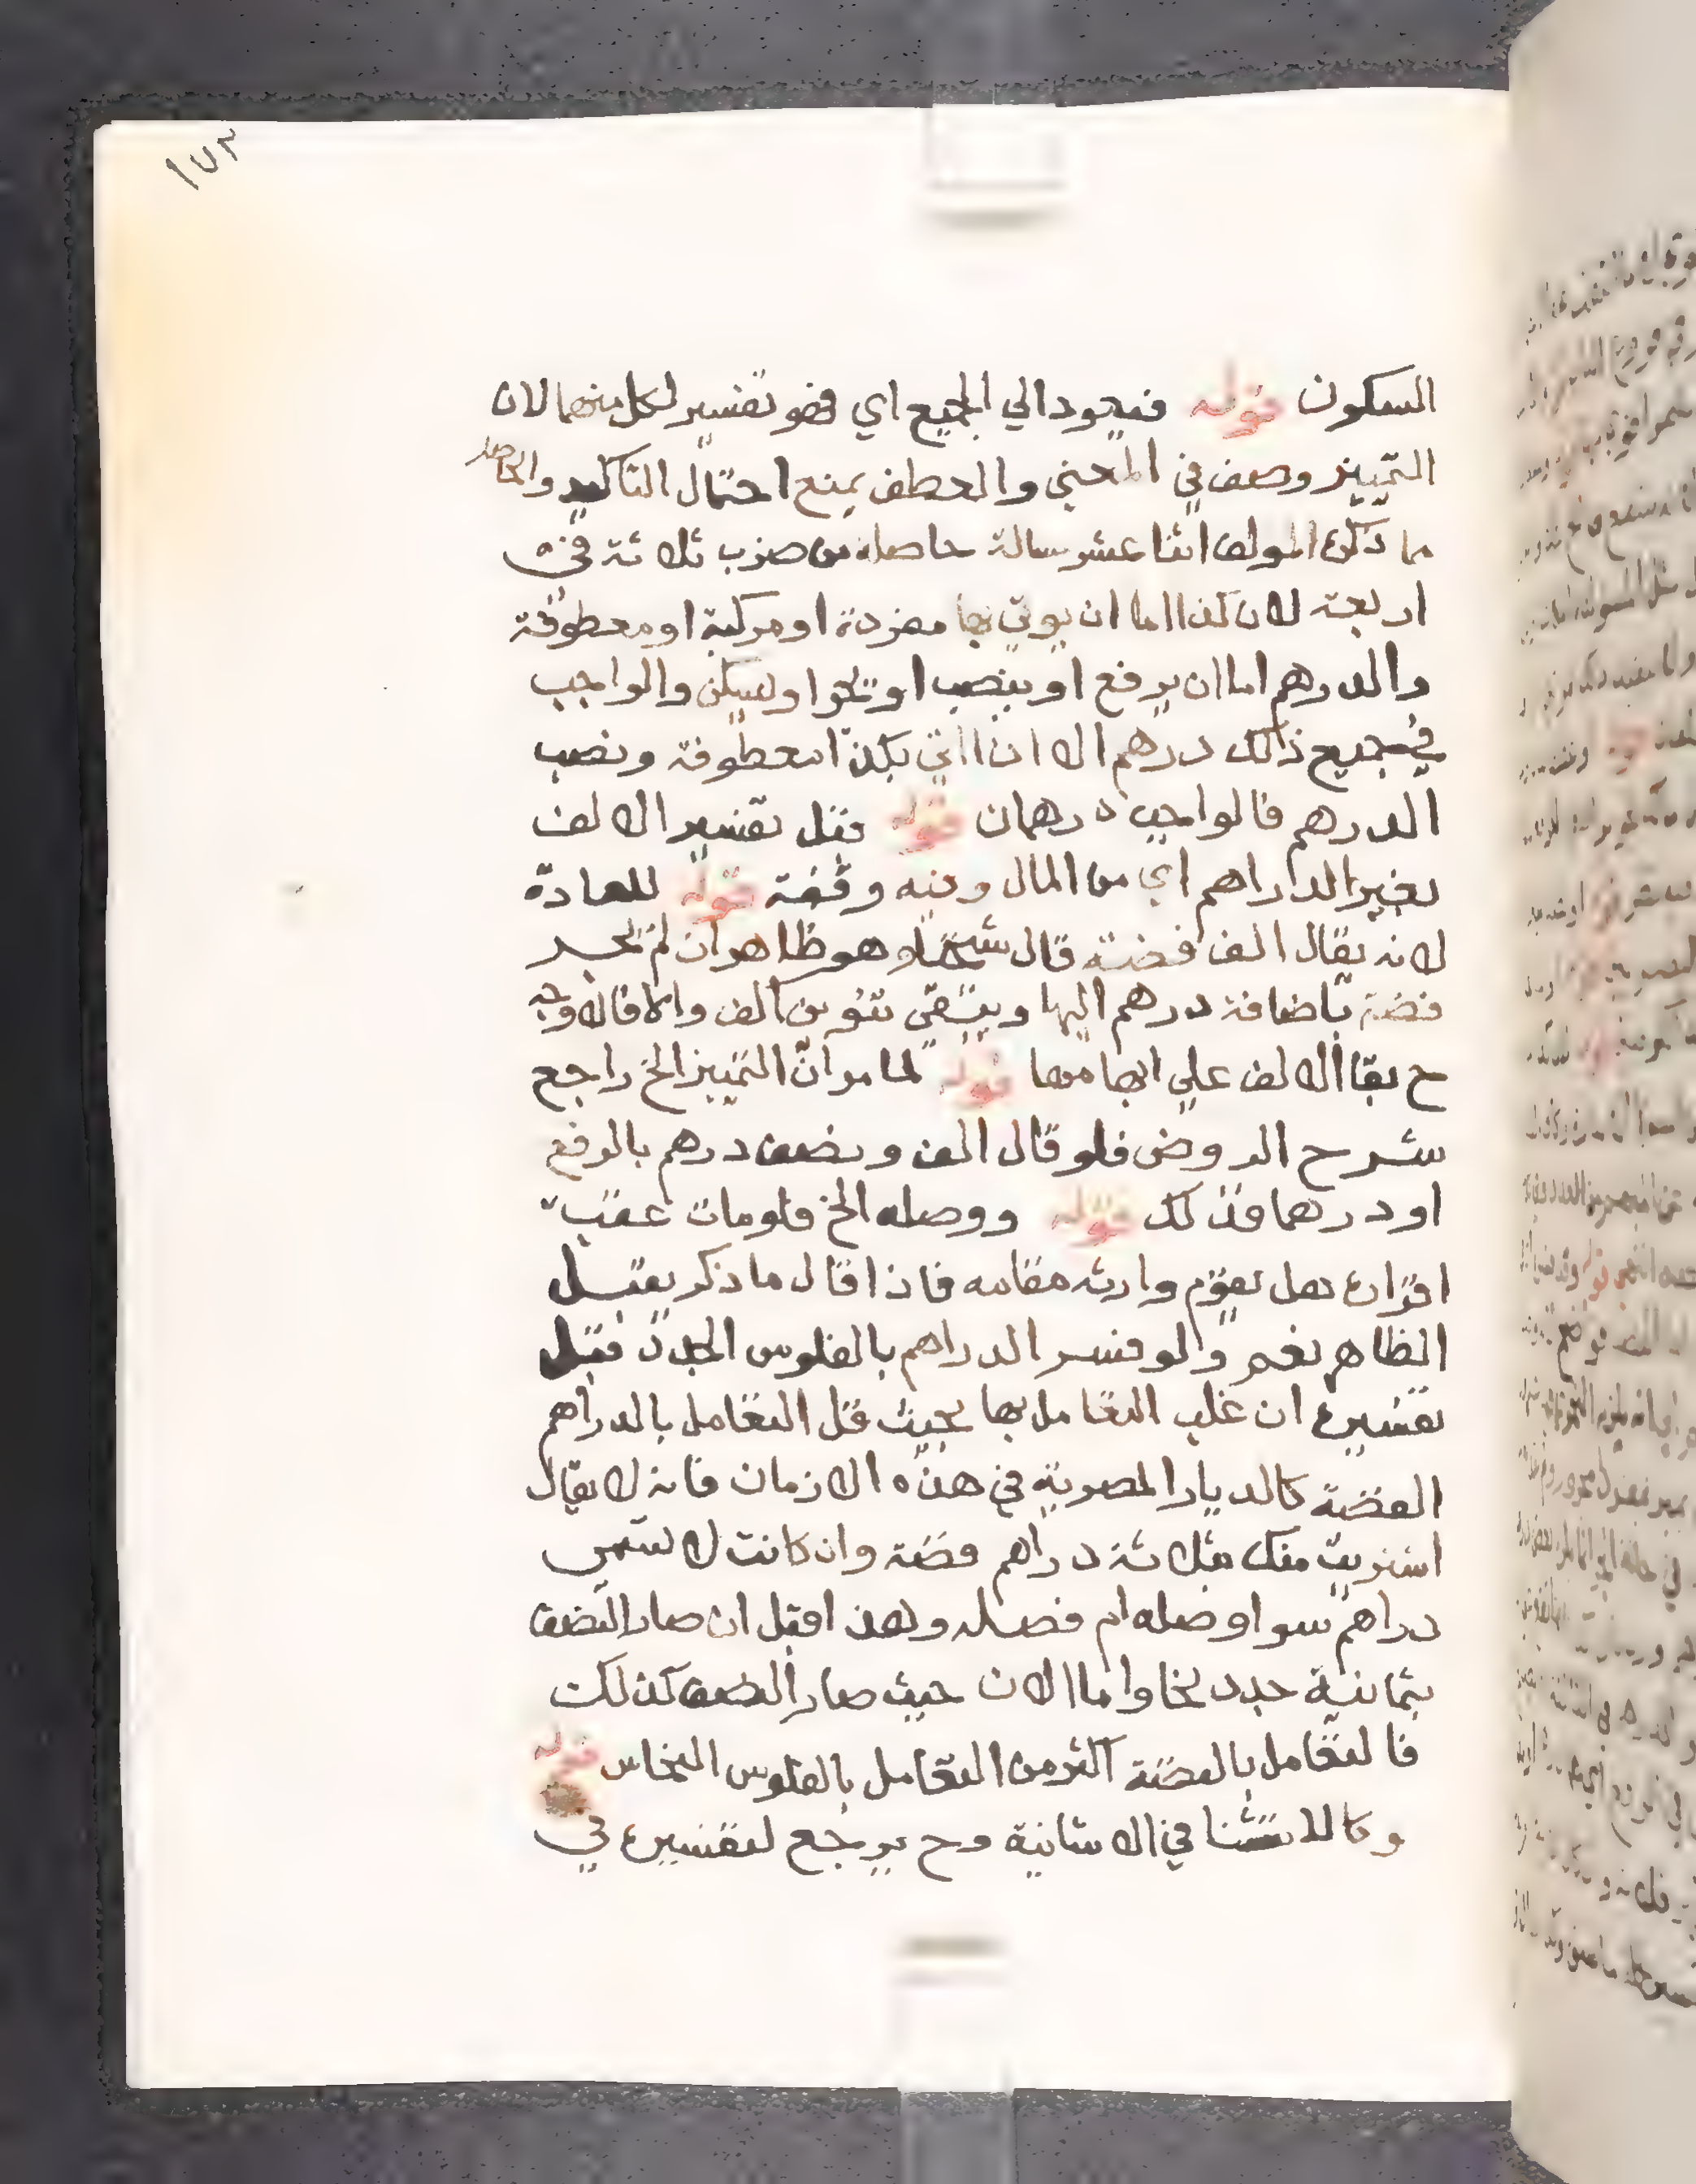 ١٧٣
السكون قوله فيعود الي الجميع اي فهو تفسير لكل منهما لان
التمييز وصف في المعني والعطف يمنع احتمال التاكيد والحاصل
ما ذكره المولف اثنا عشر مسالة حاصلة من ضرب ثلاثة في
اربعة لان كذا اما ان يوتي بها مفردة او مركبة او معطوفة
والدرهم اما ان يرفع او ينصب او يجر او يسكن والواجب
في جميع ذلك درهم الا ان اتي بكذا معطوفة ونصب
الدرهم فالواجب درهمان قوله قبل تفسير الالف
بغير الدراهم اي من المال وفيه وقفة قوله للعادة
لانه يقال الف فضة قال شيخنا وهو ظاهر ان لم يجر
فضة باضافة درهم اليها ويبقي تنوين الف والا فالاوجه
ح بقا الالف علي ابهامها قوله لما مر ان التمييز الخ راجع
شرح الروض فلو قال الف ونصف درهم بالرفع
او درهما فذلك قوله ووصله الخ فلو مات عقب
اقراره هل يقوم وارثه مقامه فاذا قال ما ذكر يقبل
الظاهر نعم ولو فسر الدراهم بالفلوس الجدد قبل
تفسيره ان غلب التعامل بها بحيث قل التعامل بالدراهم
الفضة كالديار المصرية في هذه الازمان فانه لا يقال
اشتريت منك بثلاثة دراهم فضة وان كانت لا تسمي
دراهم سوا وصله ام فصله ولهذا قبل ان صار النصف
بثمانية جدد نحا واما الان حيث صار النصف كذلك
فالتعامل بالفضة اكثر من التعامل بالفلوس النحاس قوله
وكالاستثنا في الاثانية وح يرجع لتفسيره في